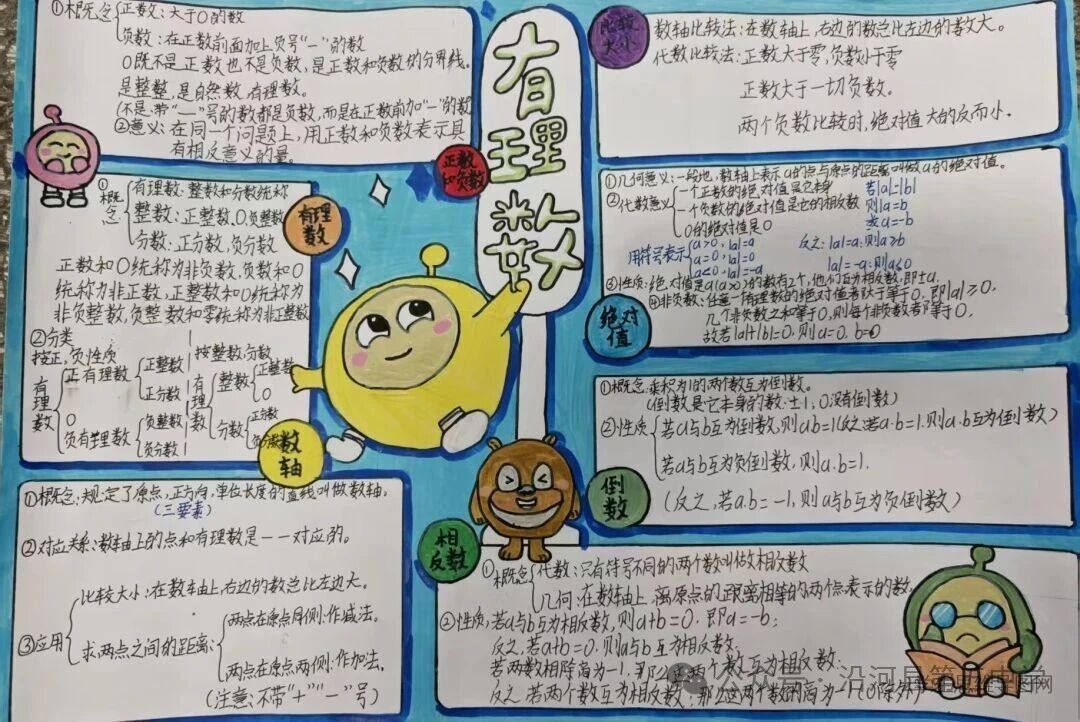 有理数
正数和负数
①概念 正数:大于0的数
负数:在正数前面加上负号"一"的数
0既不是正数也不是负数,是正数和负数的分界线。
是整整,是自然数,有理数。
(不是带"一"号的数都是负数,而是在正数前加"一"的数
②意义:在同一个问题上,用正数和负数表示具
有相反意义的量。
有理数
①概念 有理数:整数和分数统称
整数:正整数,0,负整数
分数:正分数,负分数
正数和0统称为非负数,负数和0
统称为非正数,正整数和0统称为
非负整数,负整数和零统称为非正整数
②分类
按正,负性质
有理数 正有理数 正整数
正分数
0
负有理数 负整数
负分数
按整数,分数
有理数 整数 正整数
0
分数 正分数
负分数
数轴
①概念:规定了原点,正方向,单位长度的直线叫做数轴。
(三要素)
②对应关系:数轴上的点和有理数是一一对应的。
③应用 比较大小:在数轴上右边的数总比左边大。
求两点之间的距离: 两点在原点同侧:作减法。
两点在原点两侧:作加法。
(注意:不带"+""一"号)
比较大小
数轴比较法:在数轴上,右边的数总比左边的数大。
代数比较法:正数大于零,负数小于零
正数大于一切负数。
两个负数比较时,绝对值大的反而小。
绝对值
①几何意义:一般地,数轴上表示a的点与原点的距离叫做a的绝对值。
②代数意义 一个正数的绝对值是它本身
一个负数的绝对值是它的相反数
0的绝对值是0
若|a|=|b|
则a=b
或a=-b
用符号表示 a>0,|a|=a
a=0,|a|=0
a<0,|a|=-a
反之:|a|=a,则a≥0
|a|=-a,则a≤0
③性质:绝对值是a(a>0)的数有2个,他们互为相反数,即±a.
④非负数:任意一个有理数的绝对值都大于等于0,即|a|≥0.
几个非负数之和等于0,则每个非负数都等于0.
故若|a|+|b|=0,则a=0,b=0
倒数
①概念:乘积为1的两个数互为倒数。
(倒数是它本身的数:±1,0没有倒数)
②性质 若a与b互为倒数,则ab=1(反之若a·b=1,则a·b互为倒数)
若a与b互为负倒数,则a.b=1.
(反之,若a.b=-1,则a与b互为负倒数)
相反数
①概念 代数:只有符号不同的两个数叫做相反数
几何:在数轴上,离原点的距离相等的两个点表示的数
②性质:若a与b互为相反数,则a+b=0.即a=-b;
反之,若a+b=0,则a与b互为相反数.
若两数相除商为-1,那么这两个数互为相反数;
反之,若两个数互为相反数,那么这两个数的商为-1(0除外)
公众号·沿河县第四中学